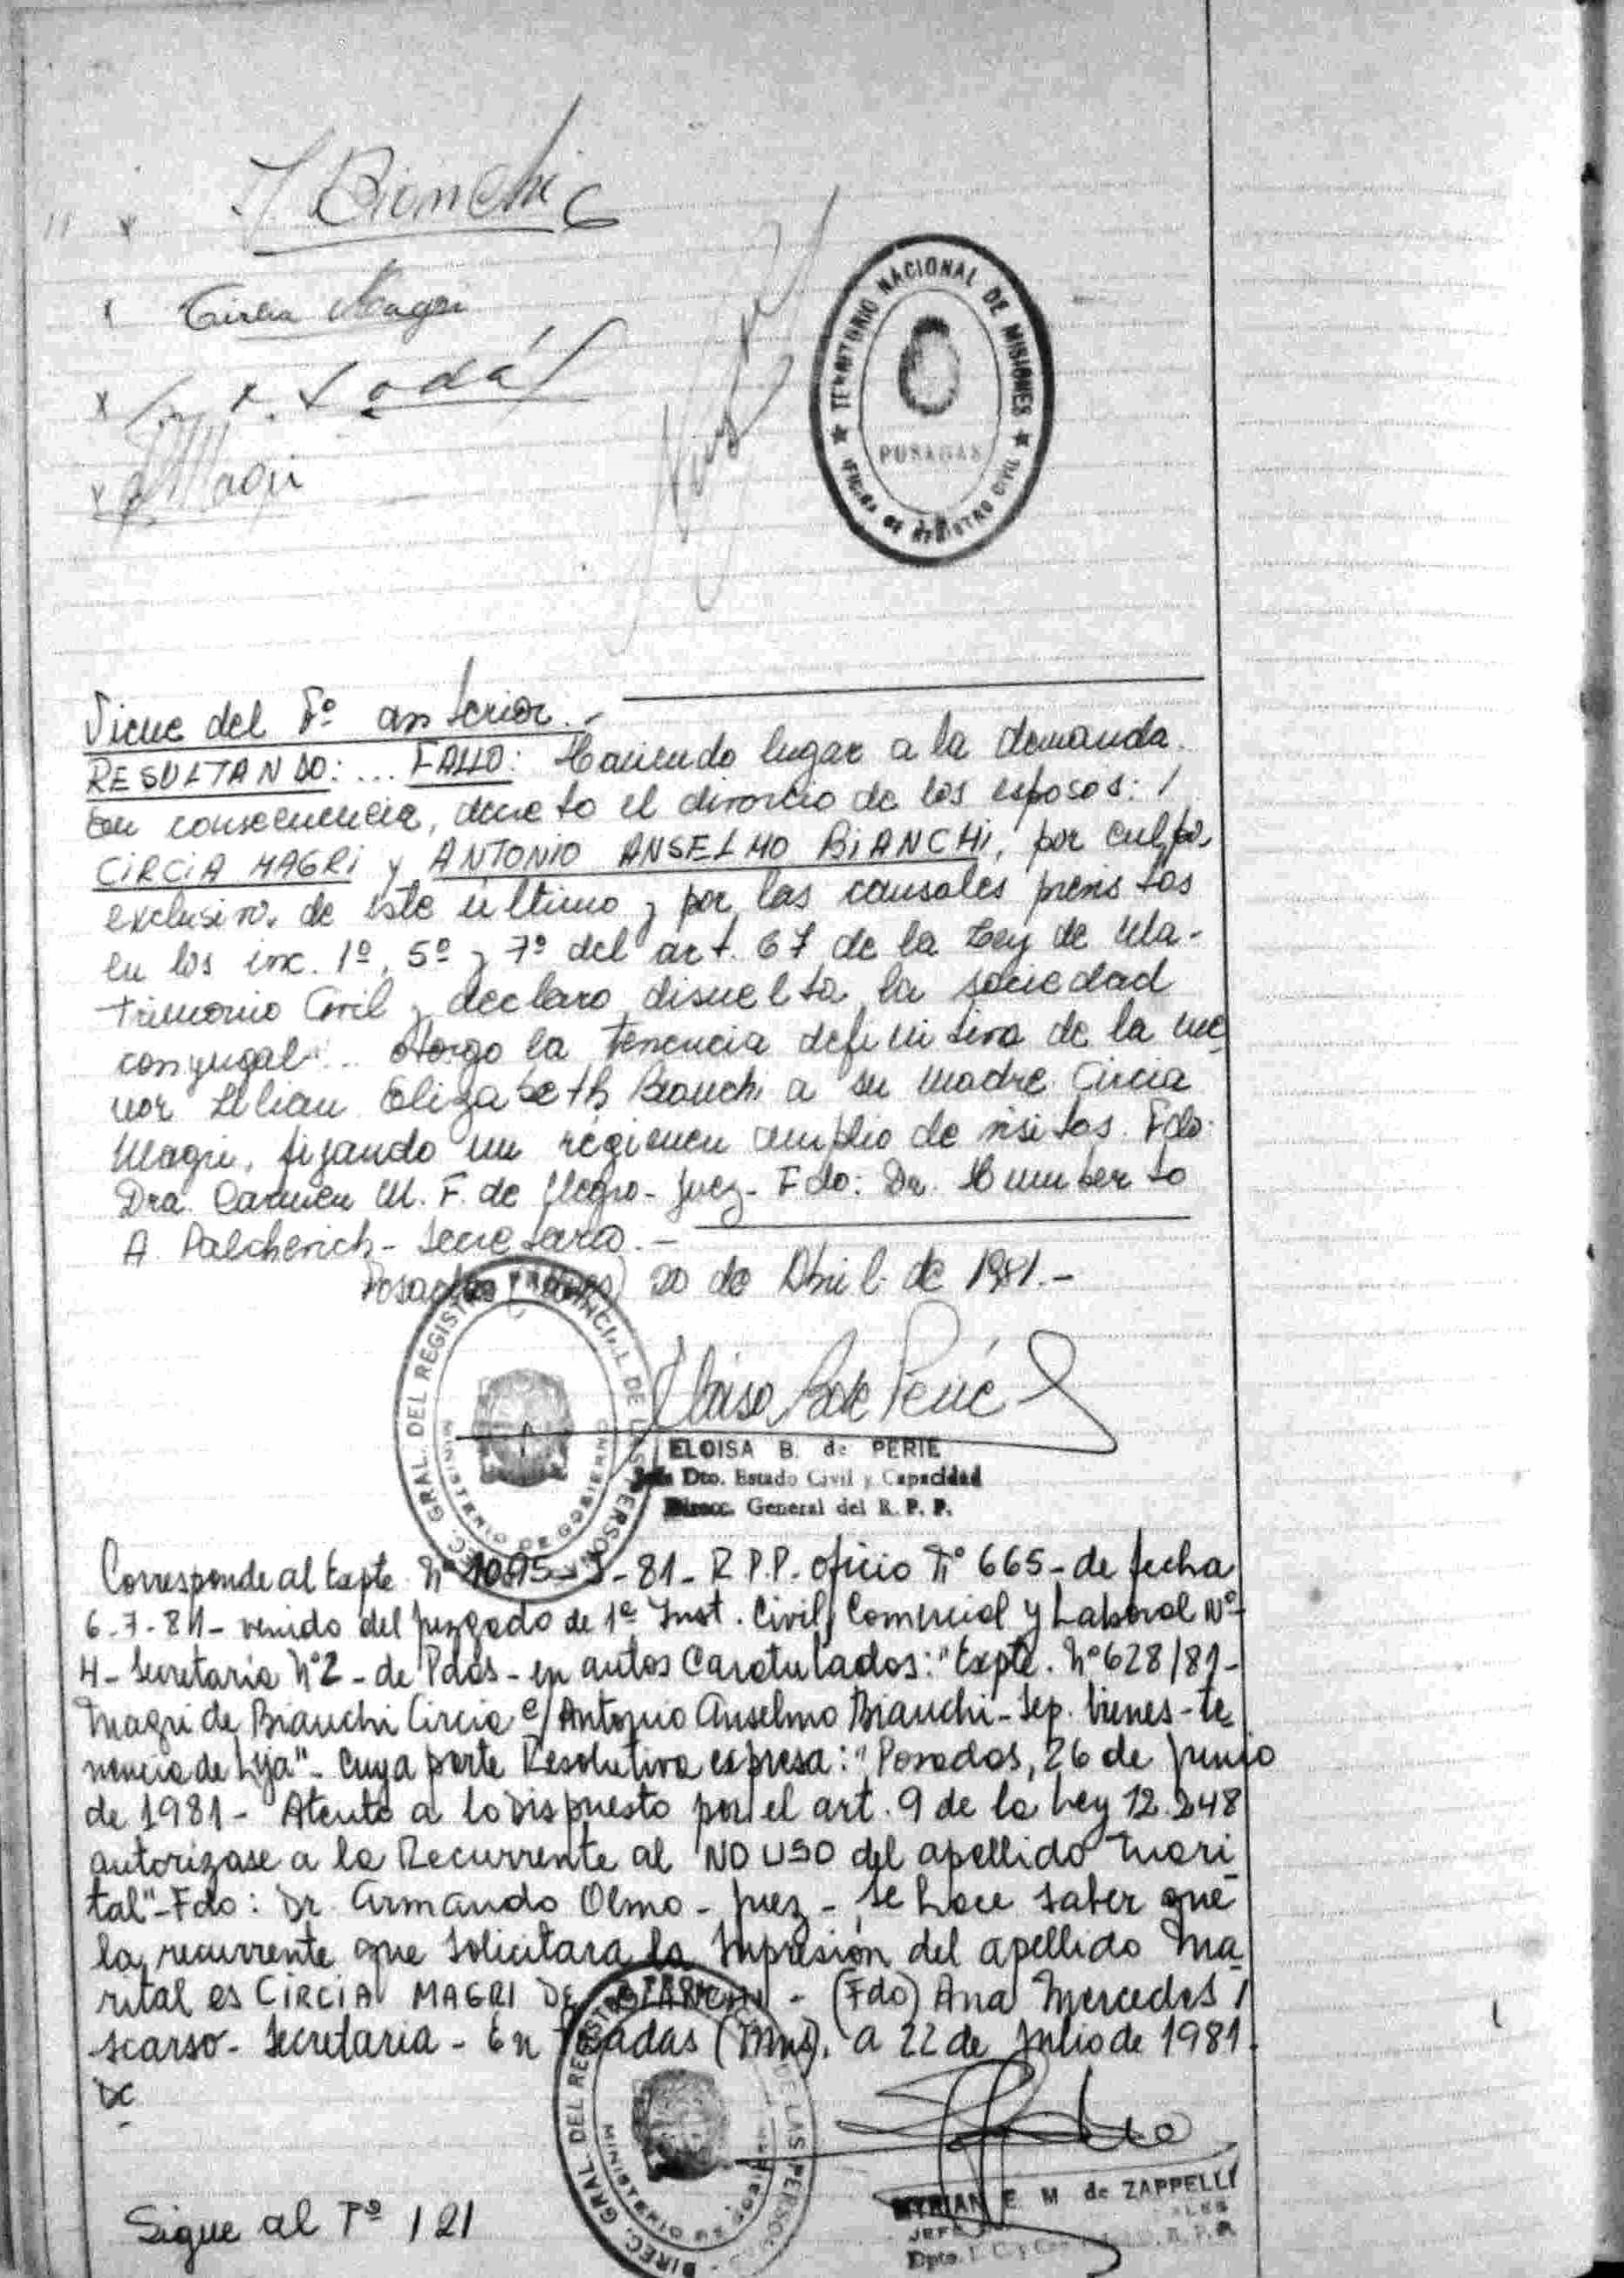 A Bianchi
Circia Magri
Magri
TERRITORIO NACIONAL DE MISIONES
POSADAS
OFICINA DE REGISTRO CIVIL
Viene del Fº anterior.-
RESULTANDO: ... FALLO: Haciendo lugar a la demanda.
En consecuencia, decreto el divorcio de los esposos: /
CIRCIA MAGRI y ANTONIO ANSELMO BIANCHI, por culpa
exclusiva de este último y por las causales previstas
en los inc. 1º, 5º y 7º del art. 67 de la Ley de Ma-
trimonio Civil y declaro disuelta la sociedad
conyugal... Otorgo la tenencia definitiva de la me
nor Lilian Elizabeth Bianchi a su madre Circia
Magri, fijando un régimen amplio de visitas. Fdo:
Dra. Carmen M. F. de Negro- Juez- Fdo: Dr. Humberto
A. Palcherich- Secretario.-
Posadas 20 de Abril de 1981.-
DIREC. GRAL. DEL REGISTRO PROVINCIAL DE LAS PERSONAS
MINISTERIO DE GOBIERNO
ELOISA B. de PERIE
Jefa Dto. Estado Civil y Capacidad
Direcc. General del R. P. P.
Corresponde al Expte Nº 1095-J-81- R.P.P. oficio Nº 665- de fecha
6-7-81- venido del Juzgado de 1ª Inst. Civil, Comercial y Laboral Nº
4- Secretaria Nº2- de Pdas- en autos Caratulados: "Expte. Nº628/81-
Magri de Bianchi Circia c/ Antonio Anselmo Bianchi- Sep. bienes- te
nencia de hija"- Cuya parte Resolutiva expresa: "Posadas, 26 de Junio
de 1981- Atento a lo Dispuesto por el art. 9 de la Ley 12.248
autorizase a la Recurrente al NO USO del apellido Mari
tal"-Fdo: Dr. Armando Olmo- Juez- Se hace saber que
la recurrente que solicitara la Supresión del apellido ma
rital es CIRCIA MAGRI DE BIANCHI - (Fdo) Ana Mercedes /
Scarso- Secretaria- En Posadas (Mns), a 22 de Julio de 1981.
DC
DIREC. GRAL. DEL REGISTRO PROVINCIAL DE LAS PERSONAS
MINISTERIO DE GOBIERNO
MYRIAN E. M de ZAPPELLI
JEFE
Dpto. R. P. P.
Sigue al Fº 121